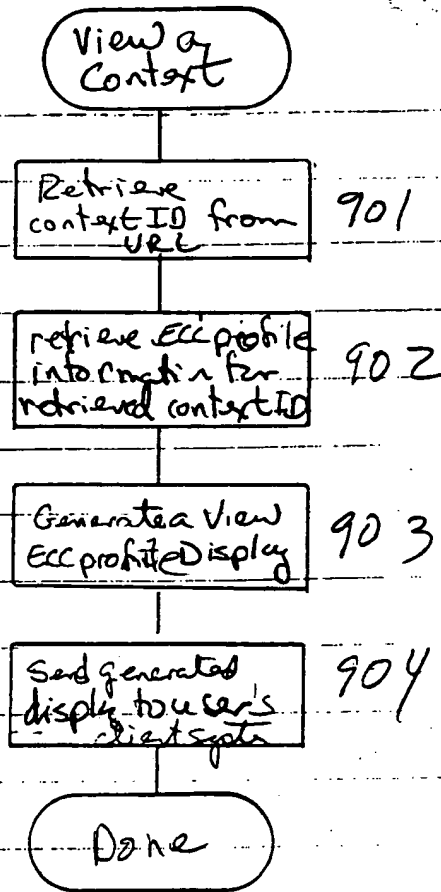 View a
Context
Retrieve
contextID from
URL
901
retrieve ECC profile
information for
retrieved contextID
902
Generate a View
ECC profile Display
903
Send generated
display to user's
client system
904
Done